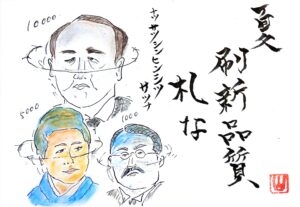 夏
刷新品質
札な
ナツサツシンヒンシツ
サツナ
10000
5000
1000